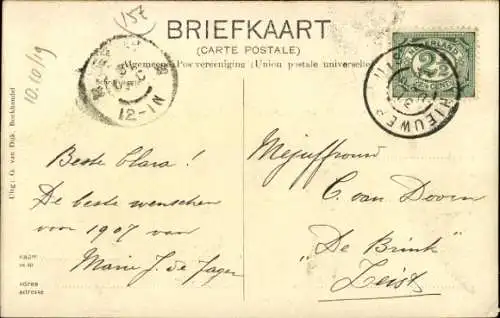 (157
BRIEFKAART
(CARTE POSTALE)
Algemeene Postvereeniging (Union postale universelle)
NEDERLAND
2½
CENT
NIEUWER
12-1N
10.10/19
Uitg: G. van Dijk, Boekhandel
Beste Clara!
De beste wenschen
voor 1907 van
Marie J. de Jager
Mejuffrouw
C. van Doorn
„De Brink"
Zeist
NAAM
en
Adres
afzender